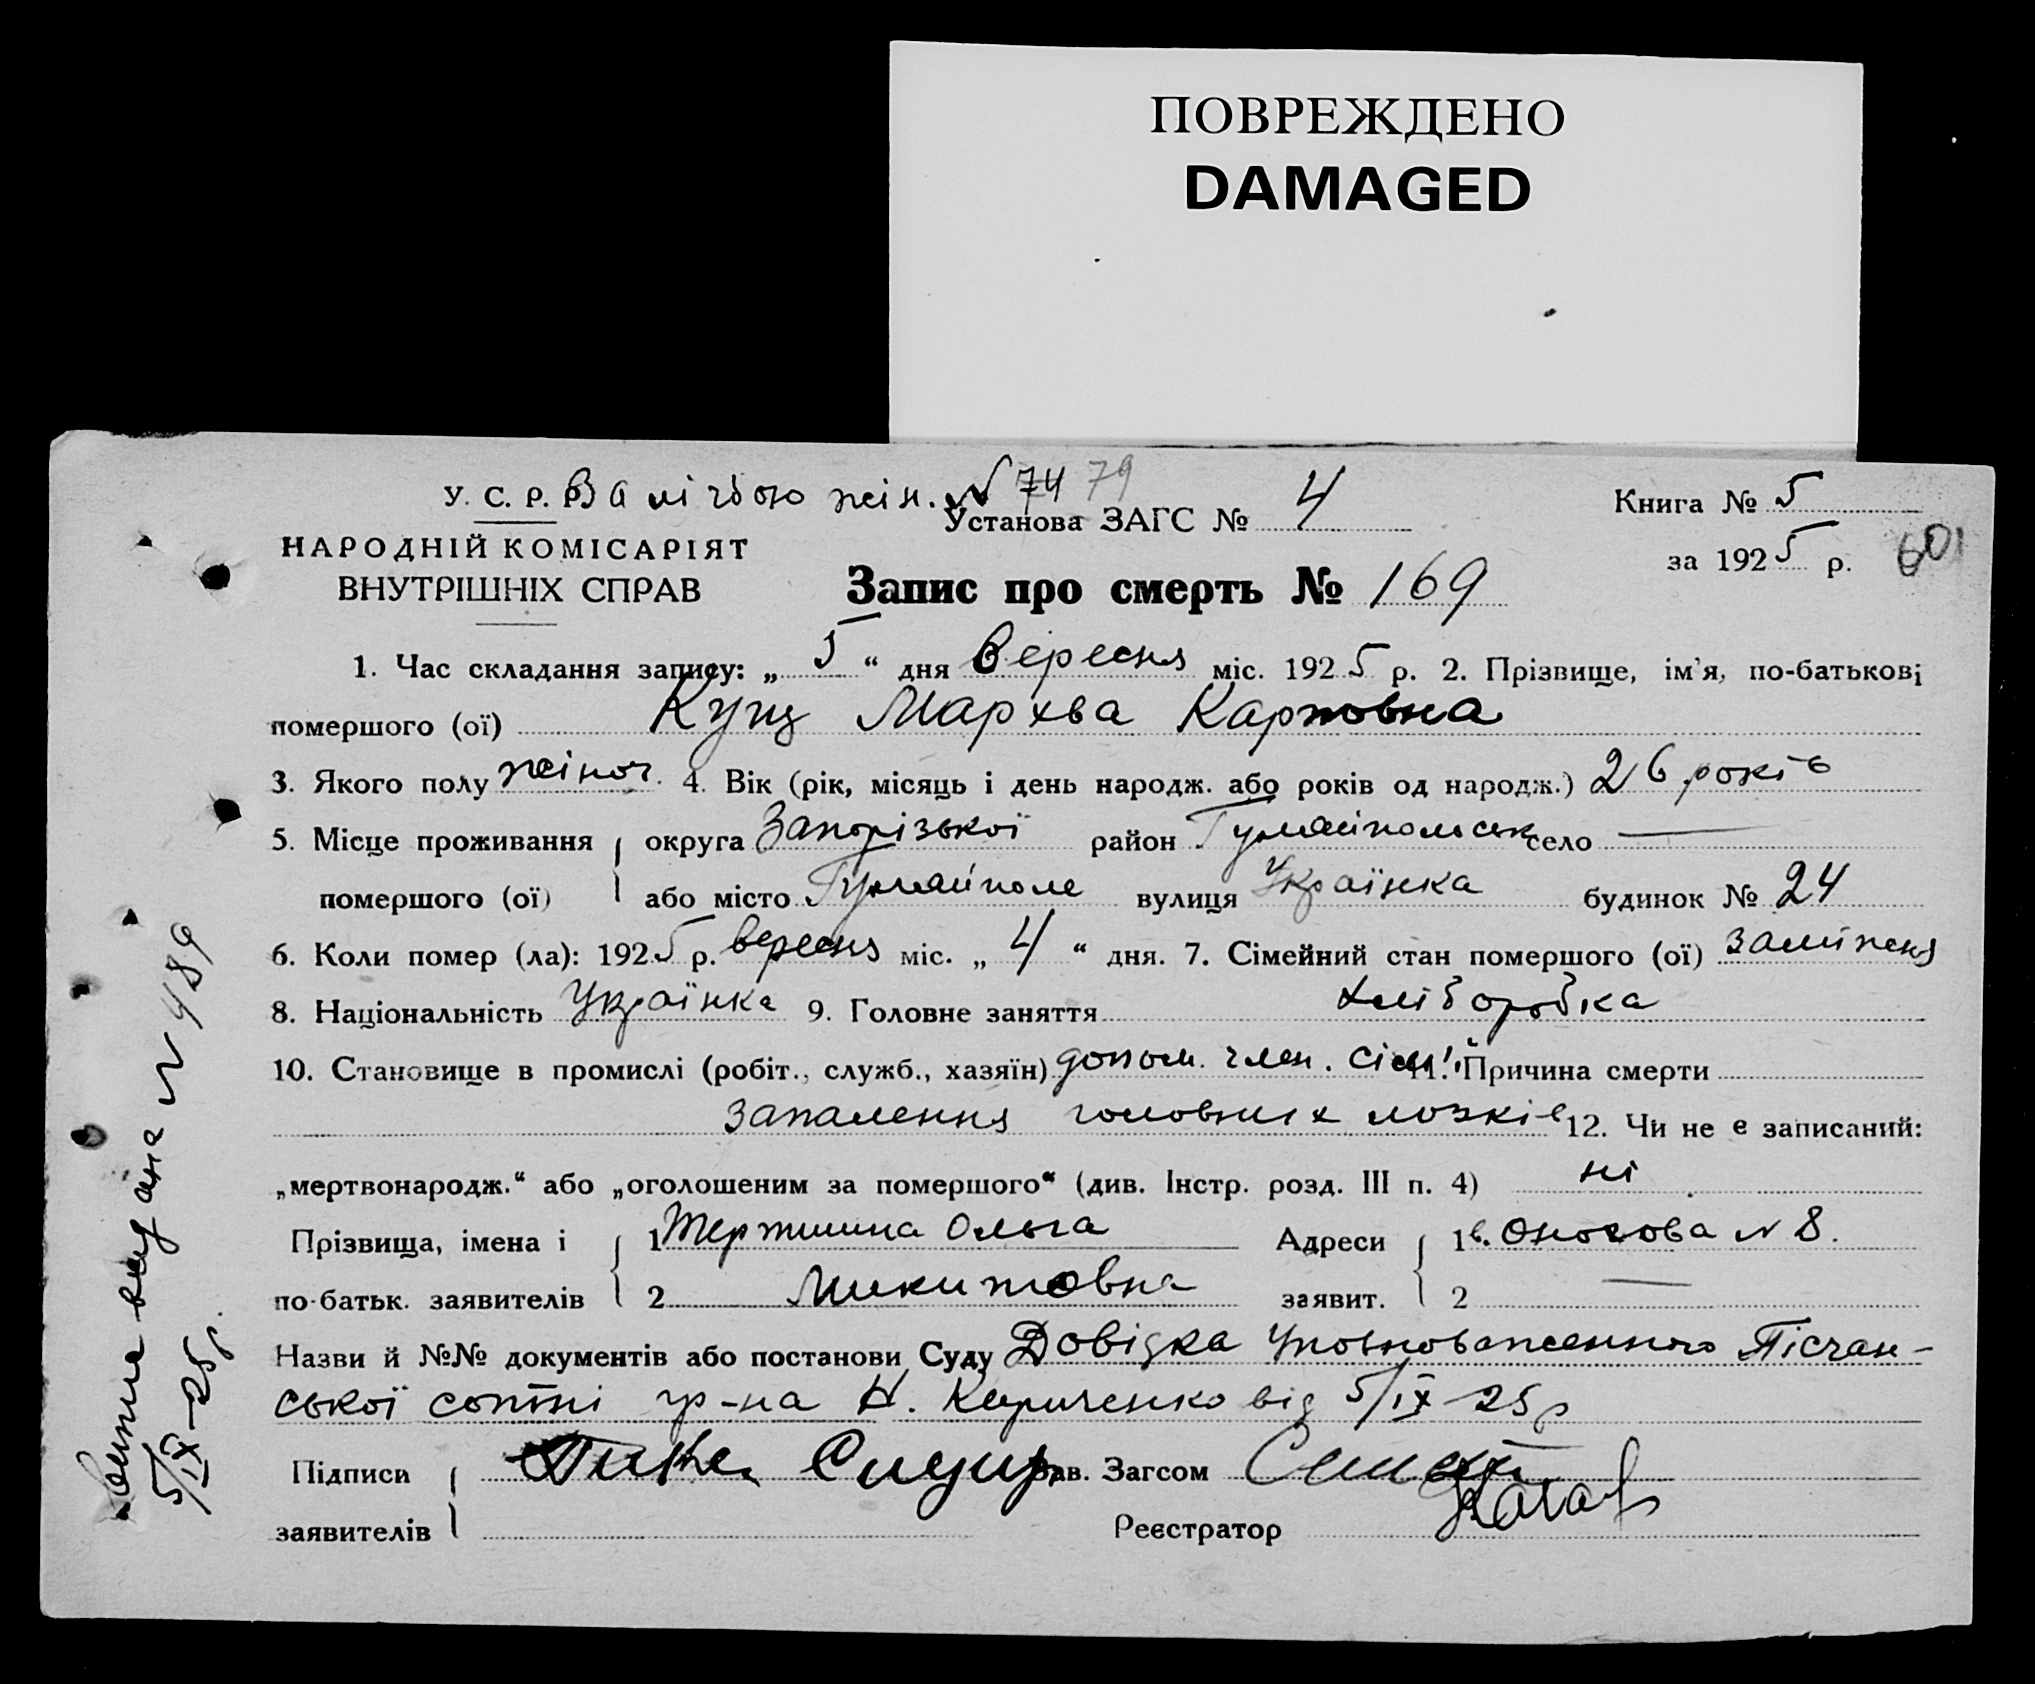 ПОВРЕЖДЕНО
DAMAGED
У. С. Р. Р. За лічбою жін. № 74 79
Установа ЗАГС № 4
Книга № 5
НАРОДНІЙ КОМІСАРІЯТ
ВНУТРІШНІХ СПРАВ
за 1925 р. 601
Запис про смерть № 169
1. Час складання запису: „ 5 “ дня Вересня міс. 1925 р. 2. Прізвище, ім’я, по-батькові
помершого (ої) Кущ Мархва Карповна
3. Якого полу жіноч. 4. Вік (рік, місяць і день народж. або років од народж.) 26 років
5. Місце проживання округа Запорізької район Гуляйпольськ село —
помершого (ої) або місто Гуляйполе вулиця Українка будинок № 24
6. Коли помер (ла): 1925 р. вересня міс. „ 4 “ дня. 7. Сімейний стан помершого (ої) заміжня
8. Національність Українка 9. Головне заняття хліборобка
10. Становище в промислі (робіт., служб., хазяїн) допом. член. сім'ї 11. Причина смерти
запалення головних мозків 12. Чи не є записаний:
„мертвонародж.“ або „оголошеним за помершого“ (див. Інстр. розд. III п. 4) ні
Прізвища, імена і 1 Ольга Адреси 1 в. № 8.
по-батьк. заявителів 2 Микитовна заявит. 2 —
Назви й №№ документів або постанови Суду Довідка Уповноваженного Пісчан-
ської сотні гр-на Н. Кириченко від 5/IX-25 р
Підписи Зав. Загсом
заявителів Реєстратор
видана № 489
5/IX-25 р.